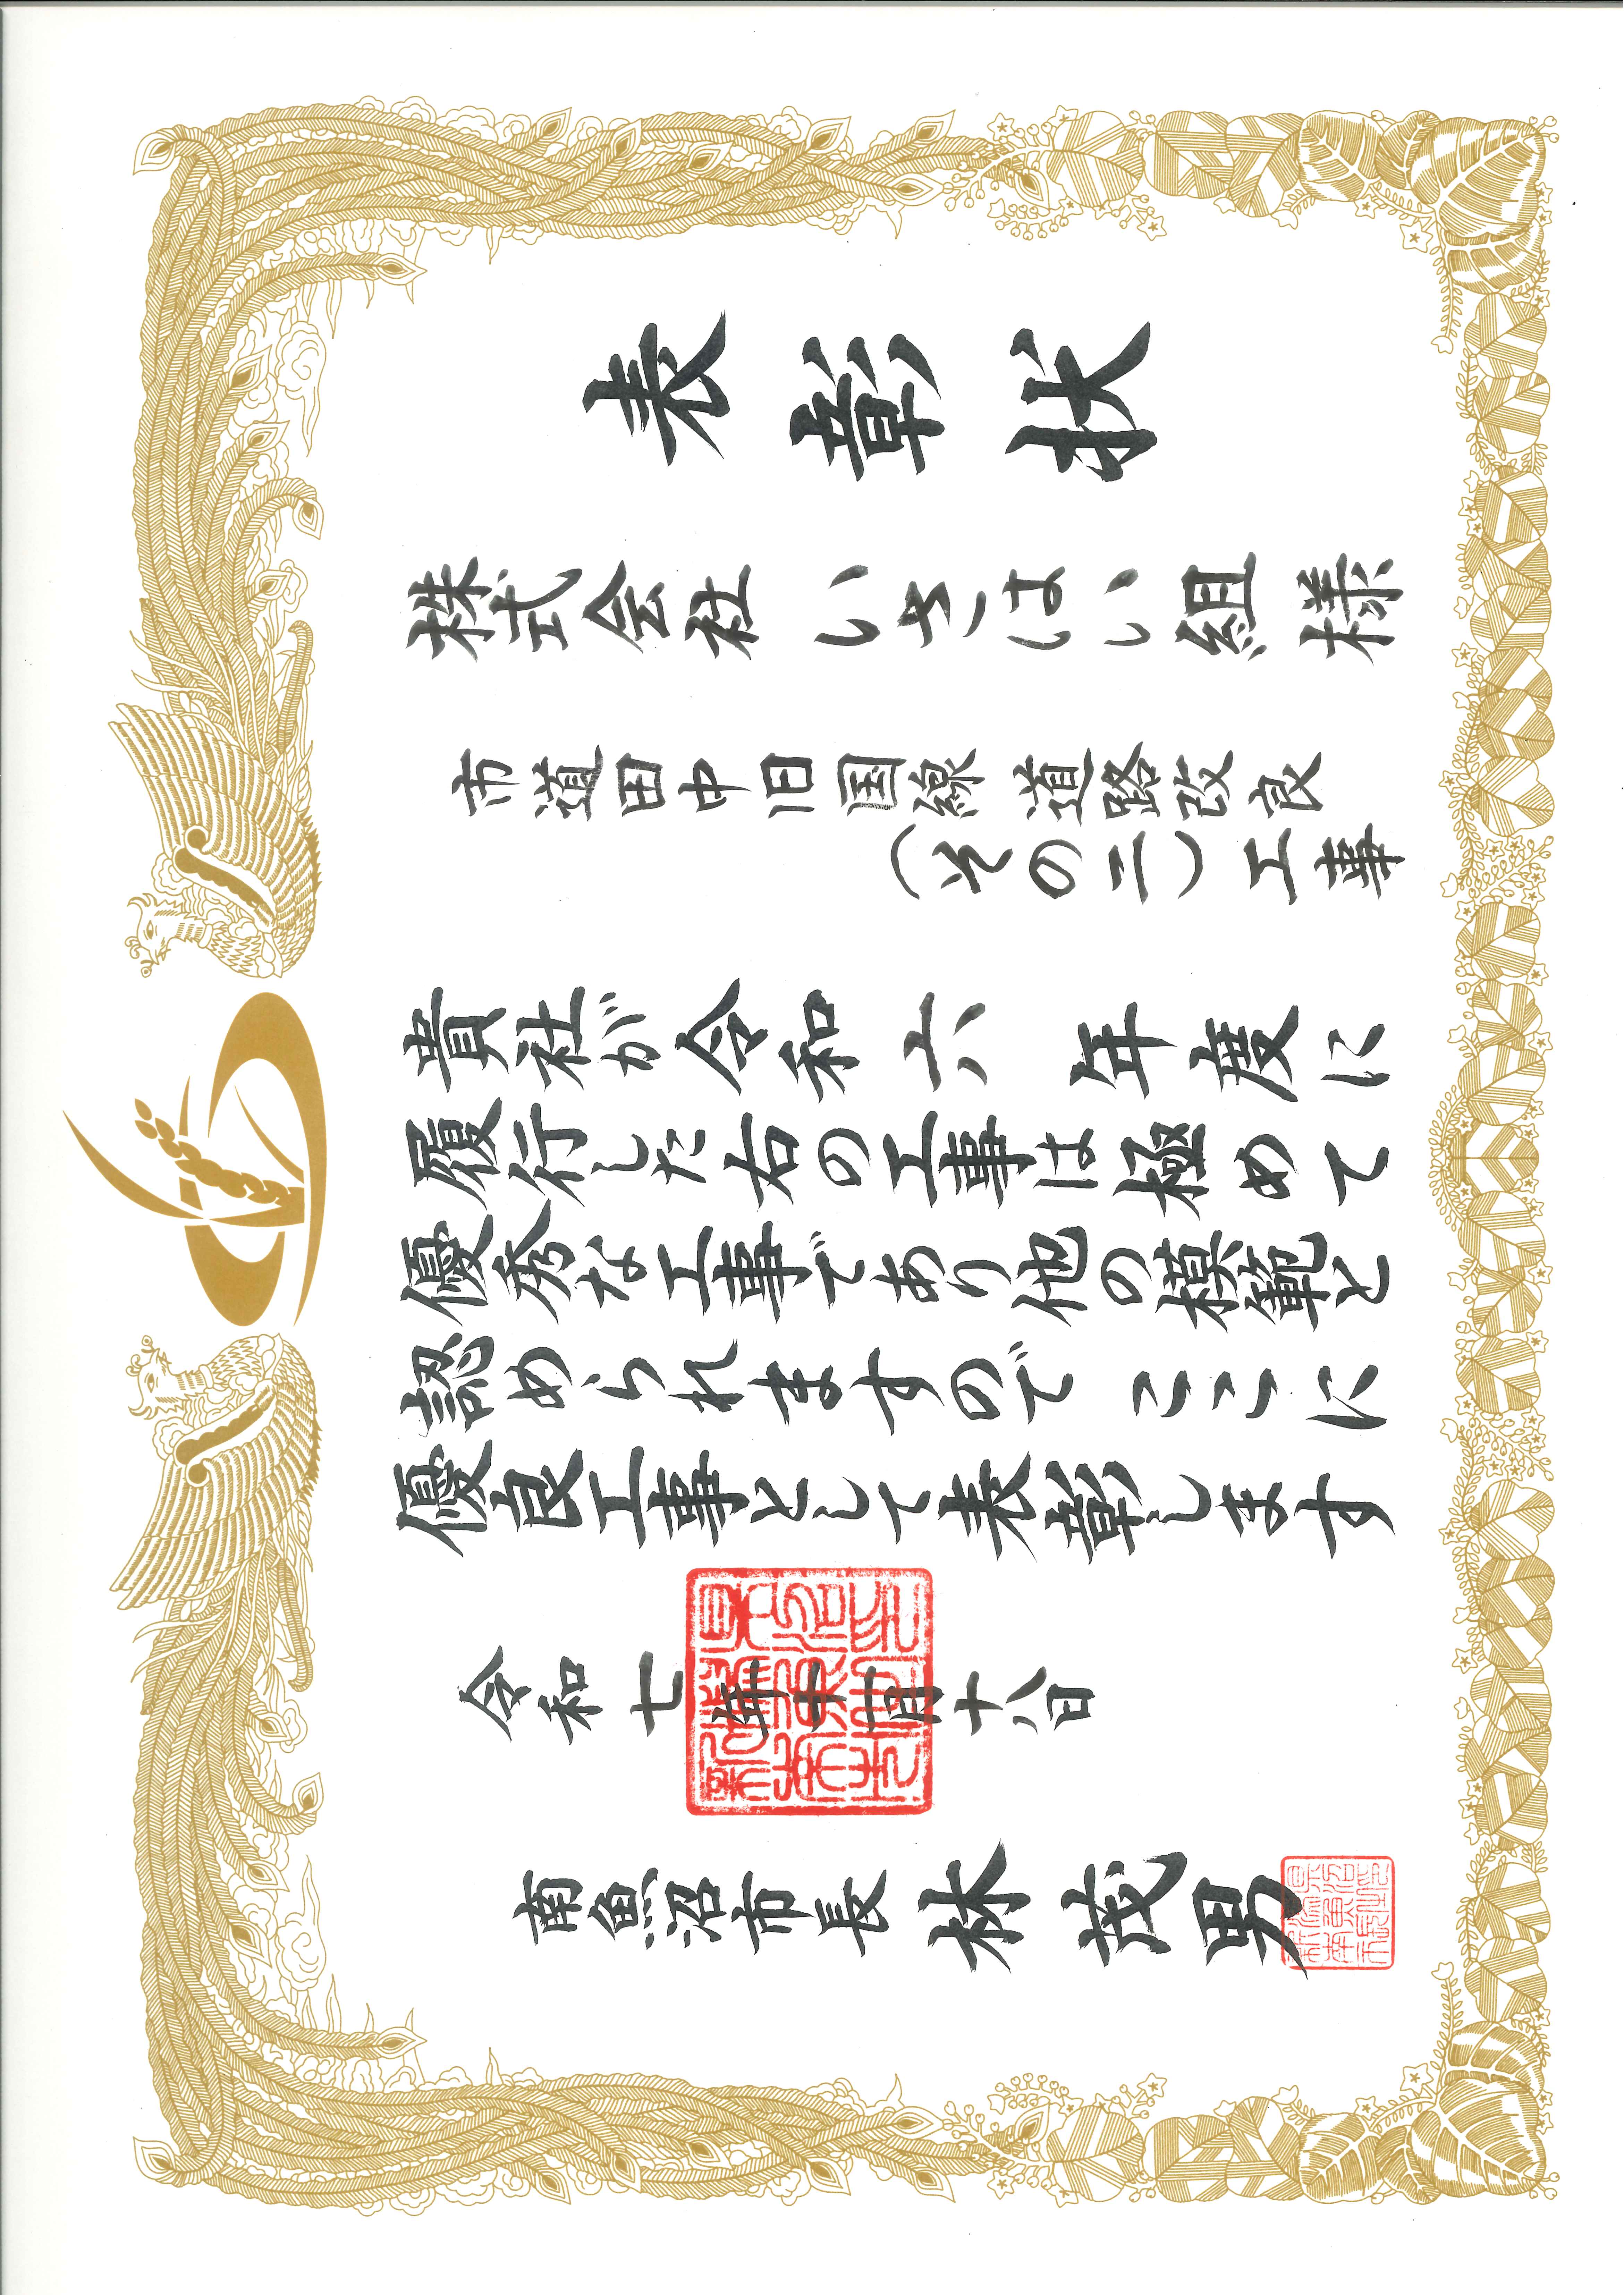 表彰状
株式会社 いさはい組 様
市道田中旧国線道路改良
（その二）工事
貴社が令和六年度に
履行した右の工事は極めて
優秀な工事であり他の模範と
認められますのでここに
優良工事として表彰します
令和七年十一月十八日
南魚沼市長 林茂男